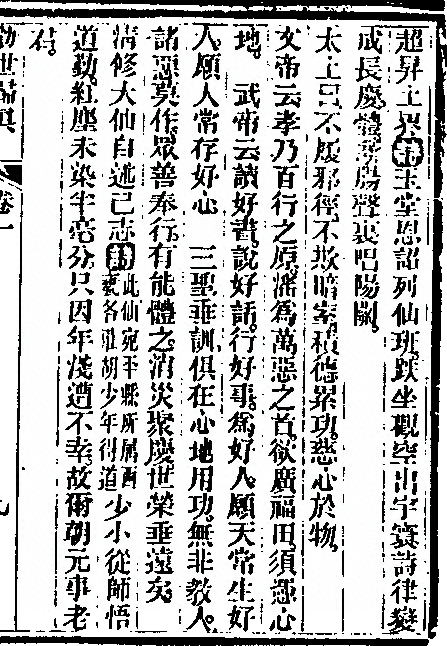 超昇上界詩玉堂恩詔列仙班。趺坐觀空出宇寰詩律變
成長慶體。鸞聲裏唱陽關。
太上曰不履邪徑不欺暗室積德累功。慈心於物。
文帝云孝乃百行之原。淫為萬惡之首。欲廣福田須憑心
地。　武帝云讀好書。說好話。行好事。為好人。願天常生好
人。願人常存好心　三聖垂訓俱在心地用功。無非教人。
諸惡莫作。眾善奉行。有能體之。消災聚慶。世榮垂遠矣
清修大仙自述己志詩此仙宛平縣所屬西
各莊胡少年得道少小從師悟
道勤。紅塵未染半毫分。只因年淺遭不幸。故爾朝元事老
君。
勸世歸真
卷一
九